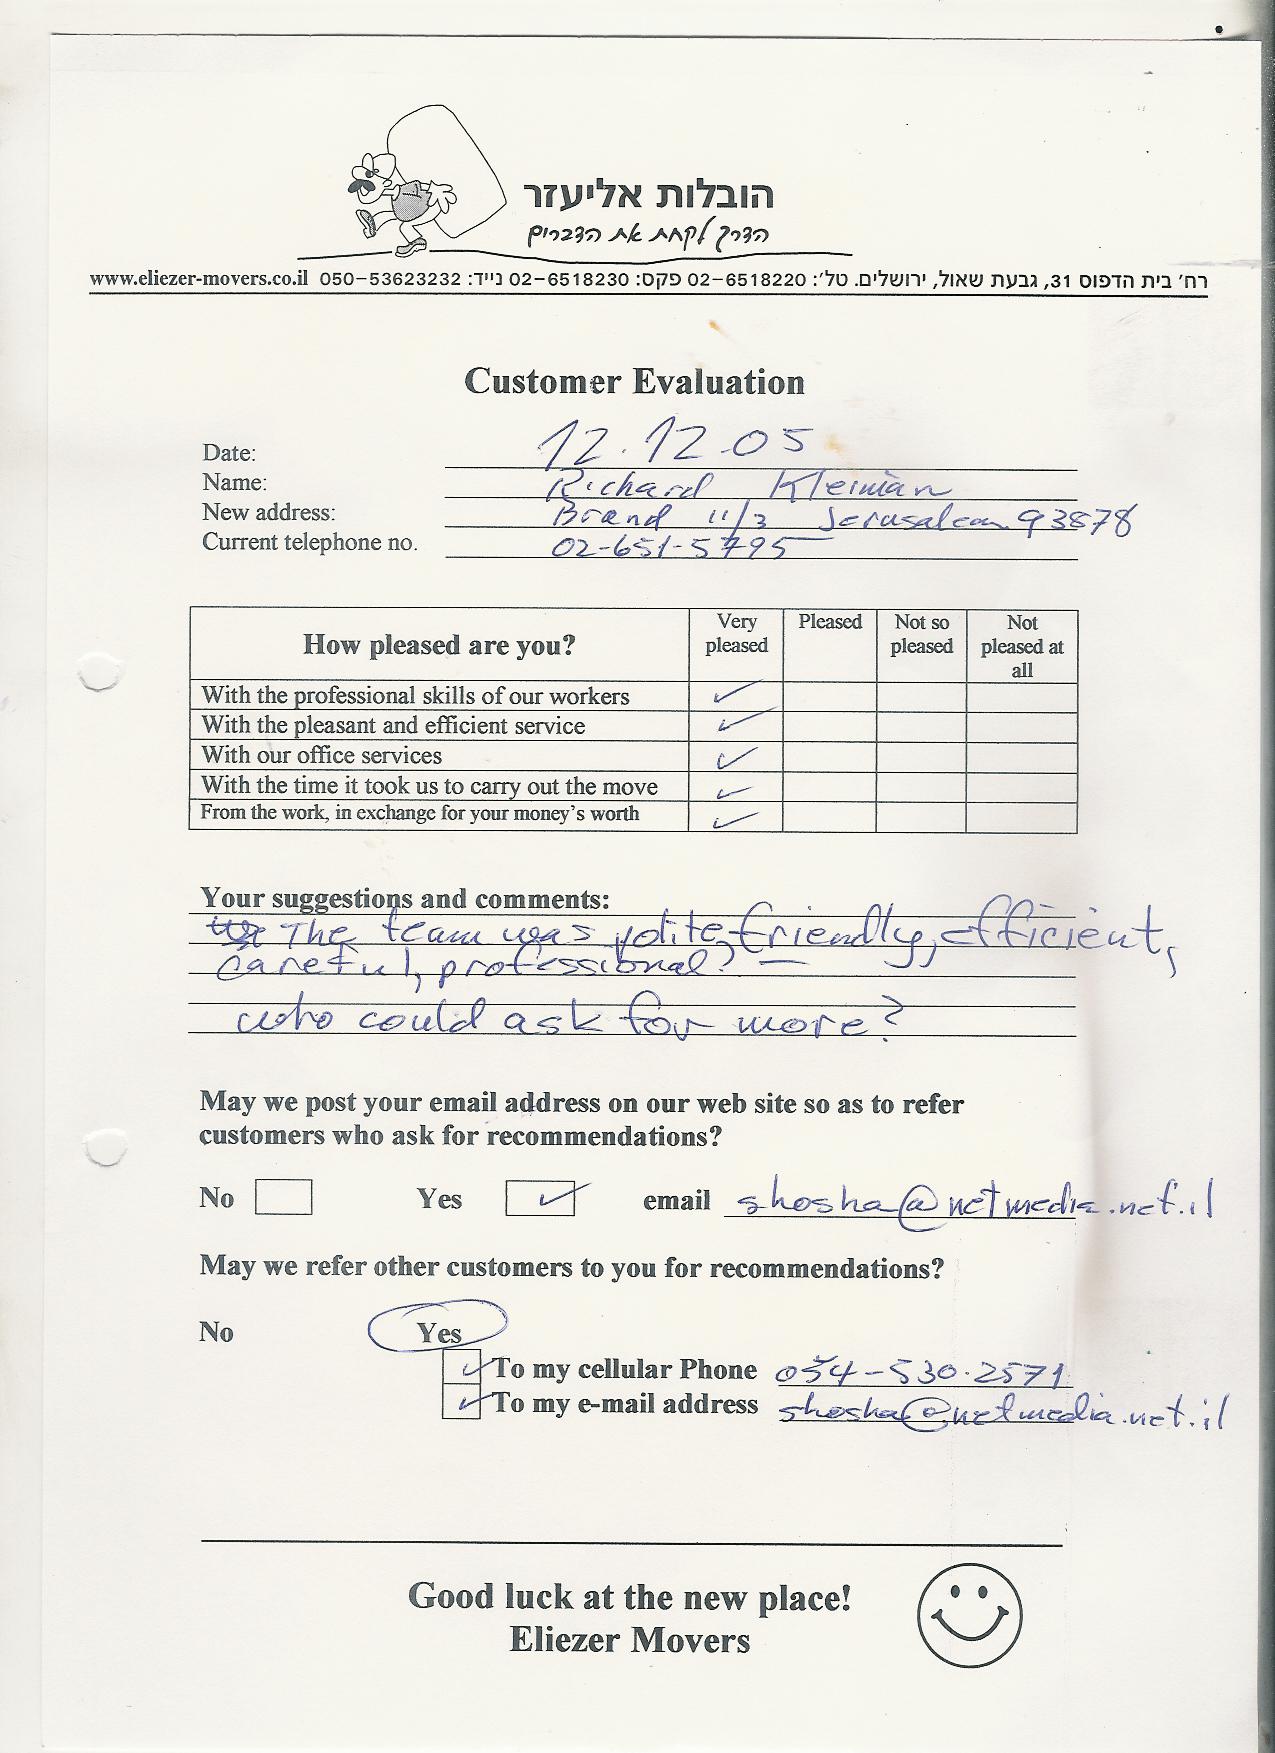 הובלות אליעזר
הדרך לקחת את הדברים
רח' בית הדפוס 31, גבעת שאול, ירושלים. טל': 02-6518220 פקס: 02-6518230 נייד: 050-53623232 www.eliezer-movers.co.il
Customer Evaluation
Date: 12.12.05
Name: Richard Kleiman
New address: Brand 11/3 Jerusalem 93878
Current telephone no. 02-651-5795
How pleased are you? Very pleased Pleased Not so pleased Not pleased at all
With the professional skills of our workers ✓
With the pleasant and efficient service ✓
With our office services ✓
With the time it took us to carry out the move ✓
From the work, in exchange for your money's worth ✓
Your suggestions and comments:
The team was polite, friendly, efficient,
careful, professional? —
who could ask for more?
May we post your email address on our web site so as to refer
customers who ask for recommendations?
No Yes ✓ email shosha@netmedia.net.il
May we refer other customers to you for recommendations?
No Yes
✓ To my cellular Phone 054-530.2571
✓ To my e-mail address shosha@netmedia.net.il
Good luck at the new place!
Eliezer Movers